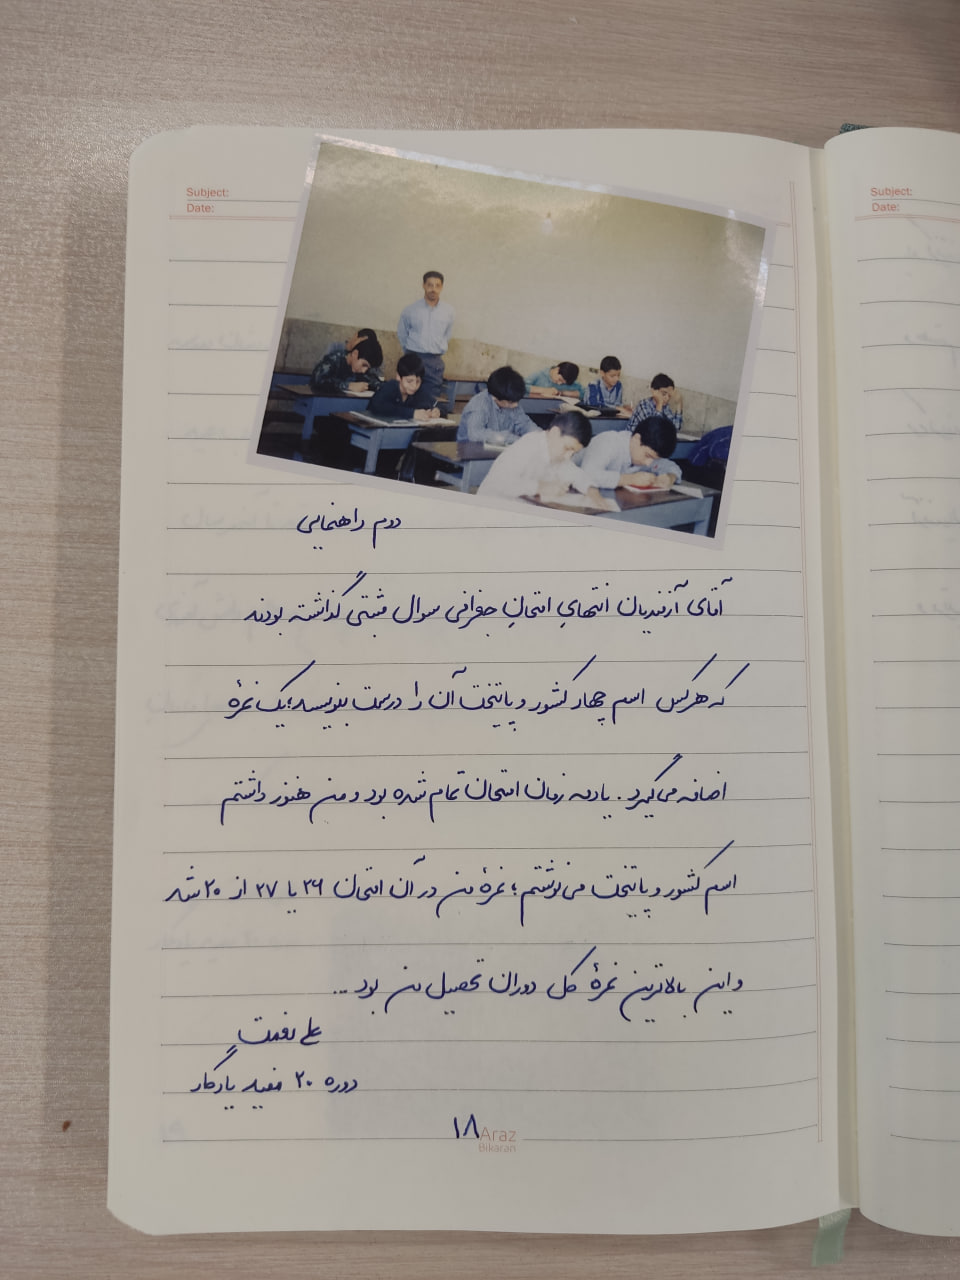 Subject:
Date:
Subject:
Date:
دوم راهنمایی
آقای آژندیان انتهایِ امتحانِ جغرافی سوال مثبتی گذاشته بودند
که هرکس اسم چهار کشور و پایتخت آن را درست بنویسد؛ یک نمرهٔ
اضافه می‌گیرد. یادمه زمان امتحان تمام شده بود و من هنوز داشتم
اسم کشور و پایتخت می‌نوشتم؛ نمرهٔ من در آن امتحان ۲۶ یا ۲۷ از ۲۰ شد
و این بالاترین نمرهٔ کل دوران تحصیل من بود ...
علی نعمت
دوره ۲۰ مفید یادگار
۱۸
Araz
Bikaran